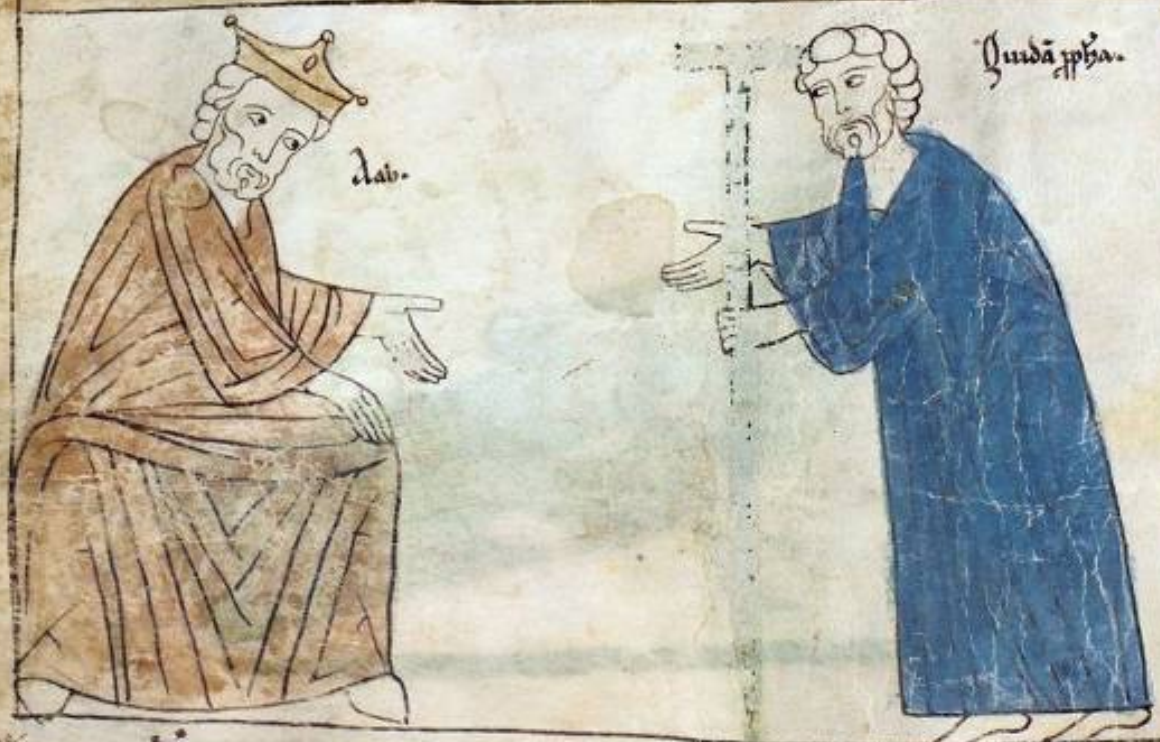 Aab.
Quidā pp̄ha.